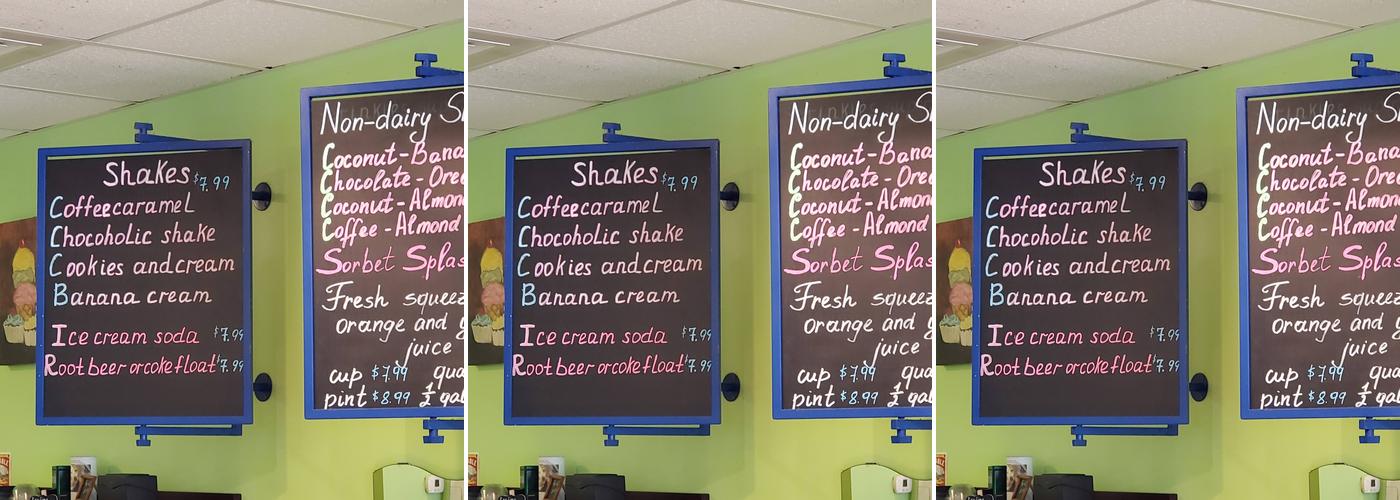 Shakes $7.99
Coffee caramel
Chocoholic shake
Cookies and cream
Banana cream
Ice cream soda $7.99
Root beer or coke float $7.99
Non-dairy S
Coconut-Bana
Chocolate - Ore
Coconut-Almon
Coffee - Almond
Sorbet Splas
Fresh squeez
orange and
juice
cup $7.99 qua
pint $8.99 ½ gal
Shakes $7.99
Coffee caramel
Chocoholic shake
Cookies and cream
Banana cream
Ice cream soda $7.99
Root beer or coke float $7.99
Non-dairy S
Coconut-Bana
Chocolate - Ore
Coconut-Almon
Coffee - Almond
Sorbet Splas
Fresh squeez
orange and
juice
cup $7.99 qua
pint $8.99 ½ gal
Shakes $7.99
Coffee caramel
Chocoholic shake
Cookies and cream
Banana cream
Ice cream soda $7.99
Root beer or coke float $7.99
Non-dairy S
Coconut-Bana
Chocolate - Ore
Coconut-Almon
Coffee - Almond
Sorbet Splas
Fresh squeez
orange and
juice
cup $7.99 qua
pint $8.99 ½ gal